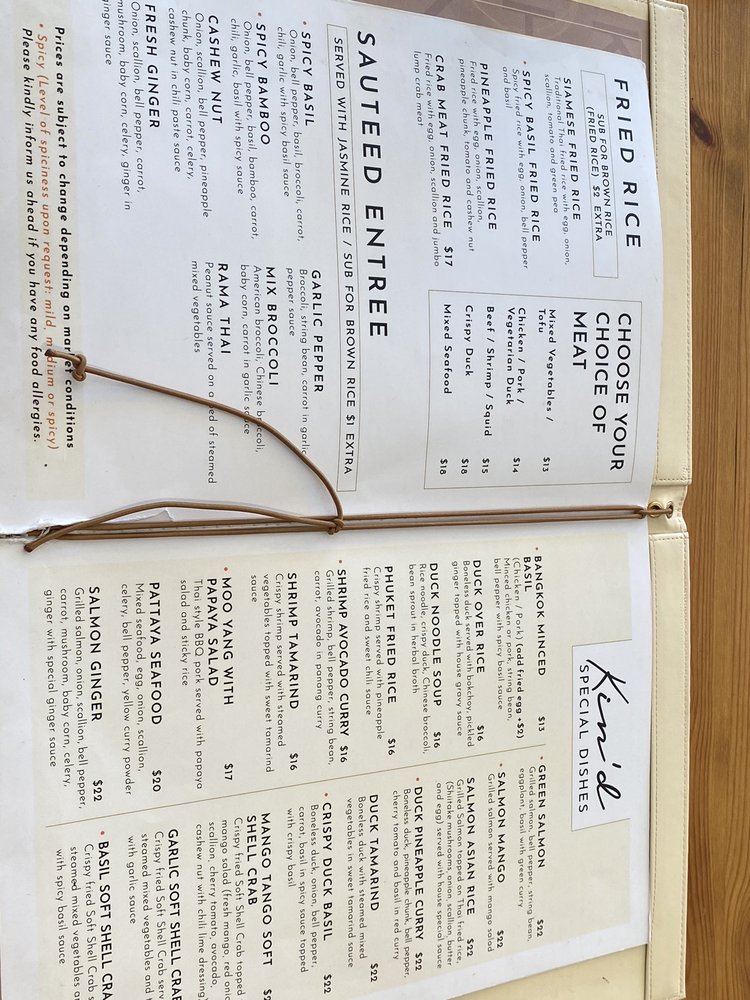 FRIED RICE
SUB FOR BROWN RICE
(FRIED RICE) $2 EXTRA
SIAMESE FRIED RICE
Traditional Thai fried rice with egg, onion,
scallion, tomato and green pea
• SPICY BASIL FRIED RICE
Spicy fried rice with egg, onion, bell pepper
and basil
PINEAPPLE FRIED RICE
Fried rice with egg, onion, scallion,
pineapple chunk, tomato and cashew nut
CRAB MEAT FRIED RICE $17
Fried rice with egg, onion, scallion and jumbo
lump crab meat
CHOOSE YOUR
CHOICE OF
MEAT
Mixed Vegetables / $13
Tofu
Chicken / Pork / $14
Vegetarian Duck
Beef / Shrimp / Squid $15
Crispy Duck $18
Mixed Seafood $18
SAUTEED ENTREE
SERVED WITH JASMINE RICE / SUB FOR BROWN RICE $1 EXTRA
• SPICY BASIL
Onion, bell pepper, basil, broccoli, carrot,
chili, garlic with spicy basil sauce
• SPICY BAMBOO
Onion, bell pepper, basil, bamboo, carrot,
chili, garlic, basil with spicy sauce
CASHEW NUT
Onion, scallion, bell pepper, pineapple
chunk, baby corn, carrot, celery,
cashew nut in chili paste sauce
FRESH GINGER
Onion, scallion, bell pepper, carrot,
mushroom, baby corn, celery, ginger in
ginger sauce
GARLIC PEPPER
Broccoli, string bean, carrot in garlic
pepper sauce
MIX BROCCOLI
American broccoli, Chinese broccoli,
baby corn, carrot in garlic sauce
RAMA THAI
Peanut sauce served on a bed of steamed
mixed vegetables
Prices are subject to change depending on market conditions
• Spicy (Level of spiciness upon request: mild, medium or spicy)
Please kindly inform us ahead if you have any food allergies.
Kin'd
SPECIAL DISHES
• BANGKOK MINCED $13
BASIL
(Chicken / Pork) (add fried egg +$2)
Minced chicken or pork, string bean,
bell pepper with spicy basil sauce
DUCK OVER RICE $16
Boneless duck served with bokchoy, pickled
ginger topped with house gravy sauce
DUCK NOODLE SOUP $16
Rice noodle, crispy duck, Chinese broccoli,
bean sprout in herbal broth
PHUKET FRIED RICE $16
Crispy shrimp served with pineapple
fried rice and sweet chili sauce
• SHRIMP AVOCADO CURRY $16
Grilled shrimp, bell pepper, string bean,
carrot, avocado in panang curry
SHRIMP TAMARIND $16
Crispy shrimp served with steamed
vegetables topped with sweet tamarind
sauce
• MOO YANG WITH $17
PAPAYA SALAD
Thai style BBQ pork served with papaya
salad and sticky rice
PATTAYA SEAFOOD $20
Mixed seafood, egg, onion, scallion,
celery, bell pepper, yellow curry powder
SALMON GINGER $22
Grilled salmon, onion, scallion, bell pepper,
carrot, mushroom, baby corn, celery,
ginger with special ginger sauce
• GREEN SALMON $22
Grilled salmon, bell pepper, string bean,
eggplant, basil with green curry
• SALMON MANGO $22
Grilled salmon served with mango salad
SALMON ASIAN RICE $22
Grilled Salmon topped on Thai fried rice,
(Shiitake mushrooms, onion, scallion, butter
and egg) served with house special sauce
• DUCK PINEAPPLE CURRY $22
Boneless duck, pineapple chunk, bell pepper,
cherry tomato and basil in red curry
DUCK TAMARIND $22
Boneless duck with steamed mixed
vegetables in sweet tamarind sauce
• CRISPY DUCK BASIL $22
Boneless duck, onion, bell pepper,
carrot, basil in spicy sauce topped
with crispy basil
MANGO TANGO SOFT
SHELL CRAB
Crispy fried Soft Shell Crab topped
mango salad (fresh mango, red
scallion, cherry tomato, avocado,
cashew nut with chili lime dressing)
GARLIC SOFT SHELL CRAB
Crispy fried Soft Shell Crab
steamed mixed vegetables and
with garlic sauce
• BASIL SOFT SHELL
Crispy fried Soft Shell Crab
steamed mixed vegetables
with spicy basil sauce